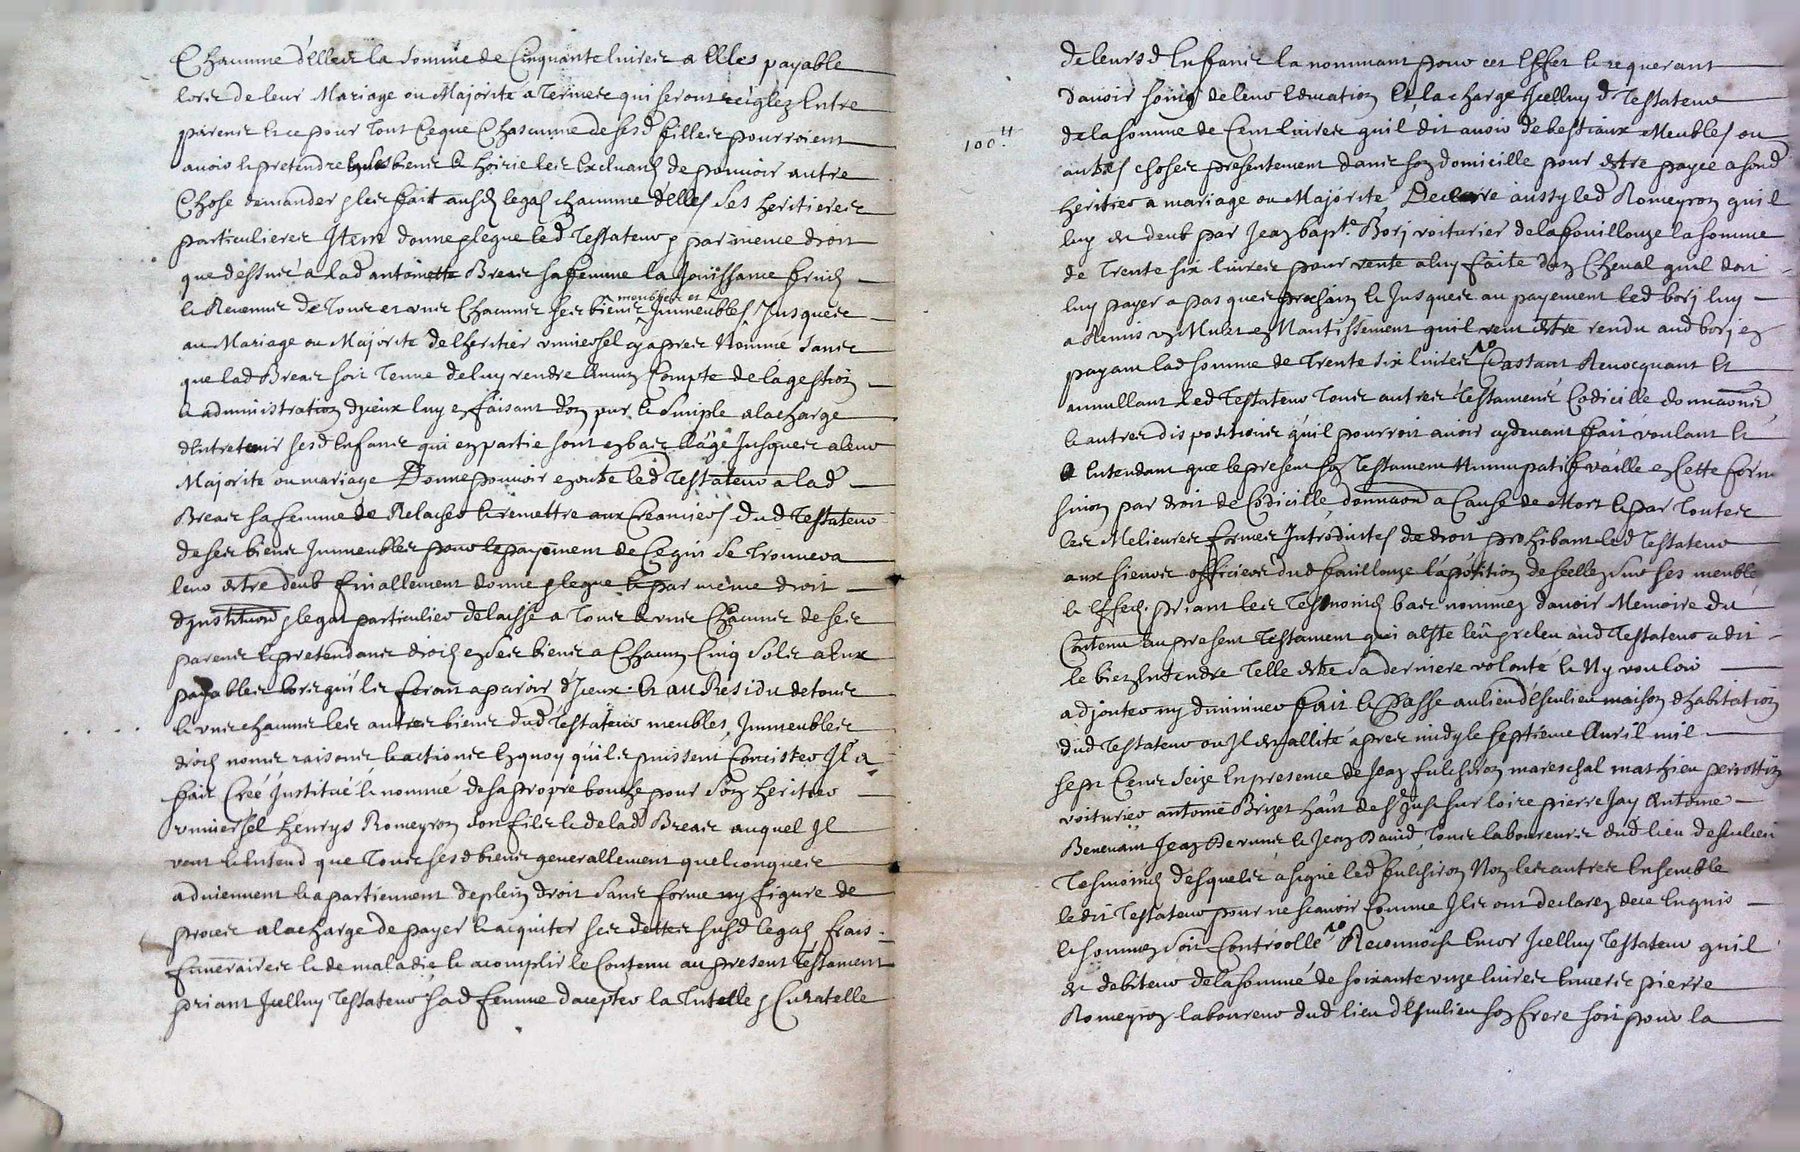 Chacunne d'elles la somme de Cinquante livres a Elles payable
lors de leur Mariage ou Majorité a Termes qui seront réiglez Entre
parens Et ce pour Tout Ce que Chascunne de sesd filles pourroient
avoir Et pretendre sesbiens Et hoirie les Excluand de pouvoir autre
Chose demander
particulieres Item donne & legue led Testateur & par mème droit
que dessus a lad antoinette Breas sa femme la Jouissance fruicts
Et Revenus de Tous et uns Chacuns ses biens meubles et Immeubles Jusques
au Mariage ou Majorité de lheritier universel cy apres Nommé sans
que lad Breas soit Tenue de luy rendre Aucun Compte de la gestion
Et administration dyceux luy en faisant don pur Et simple a la charge
dEntretenir sesd Enfans qui en partie sont en bas Aâge Jusques a leur
Majorité ou mariage Donne pouvoir en outre led Testateur a lad
Breas sa femme de Relacher Et remettre aux Creanciers dud Testateur
de ses biens Immeubles pour le payement de Ce qui se Trouvera
leur estre deub finallement donne & legue Et par mème droit
dinstitution & legat particulier delaisse a Tous Et uns Chacuns de ses
parens Et pretendans droicts en ses biens a Chacun Cinq Sols a Eux
payables lors quils feront aparoir dJceux Et au Residu de tous
Et uns chacuns les autres biens dud Testateur meubles, Immeubles
droicts noms raisons Et actions En quoy quils puissent Concister Il a
fait Créé Institué Et nommé de sa propre bouche pour Son heritier
universel Henrys Romeyron son fils Et de lad Breas auquel Il
veut Et Entend que Tous sesd biens generallement quelconques
adviennent Et apartiennent de plein droit sans forme ny figure de
proces a la charge de payer Et acquiter ses dettes susd legats frais
funeraires Et de maladie Et acomplir le Contenu au present Testament
priant Icelluy Testateur sad femme dacepter la Tutelle & Curatelle
de leursd Enfans la nommant pour cet Effet Et requerant
davoir soing de leur Education Et la charge Icelluy d Testateur
100.ᴴ
de la somme de Cent livres quil dit avoir de bestiaux Meubles ou
autres choses presentement dans son domicille pour estre payée a sond
heritier a mariage ou Majorité, Declare aussy led Romeyron quil
luy est deub par Jean bap.te Borj voiturier de la fouillouze la somme
de Trente six livres pour vente a luy faite dun Cheval quil doit
luy payer a pasques prochain Et Jusques au payement led borj luy
a Remis un Mulet en Nantissement quil veut estre rendu aud borj en
payant lad somme de Trente six livres Cassant Revocquant Et
annullant led Testateur Tous autres Testamens Codicille donnaons
Et autres dispositions quil pourroit avoir cydevant fait voulant Et
Entendant que le present son Testament Nunnupatif vaille en Cette forme
sinon par droit de Codicille, donnaon a Cause de Mort Et par Toutes
les Melieures formes Introduites de droit prohibant led Testateur
aux sieurs officiers dud fouillouze lapôsition de scellé sur ses meubles
Et Effects priant les Tesmoins bas nommez davoir Memoire du
Contenu au present Testament qui a Esté leu & releu aud Testateur a dit
le bien Entendre Telle estre Sa derniere volonté Et Ny vouloir
adjouter ny diminuer fait Et Passé au lieu dEsculieu maison dhabitation
dud Testateur ou Il est allité apres midy le septieme Avril mil
sept Cens seize En presence de Jean fulchiron mareschal mathieu
voiturier antoine Brizet haut de St Just sur loire pierre Jay Antoine
Benevant Jean et Jean David, Tous laboureurs dud lieu dEsculieu
Tesmoins desquels a signé led fulchiron Non les autres Ensemble
ledit Testateur pour ne scavoir Comme Ils ont declarez de ce Enquis
Et sommez soit Controollé Reconnoist Encor Icelluy Testateur quil
est debiteur de la somme de soixante unze livres Envers pierre
Romeyron laboureur dud lieu dEsculieu son frere soit pour la